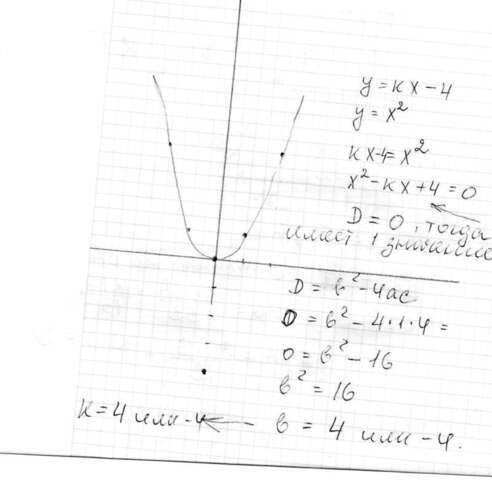 y = kx - 4
y = x²
kx-4 = x²
x² - kx + 4 = 0
D = 0, тогда
имеет 1 значение
D = b² - 4ac
0 = b² - 4·1·4 =
0 = b² - 16
b² = 16
b = 4 или -4.
k = 4 или -4